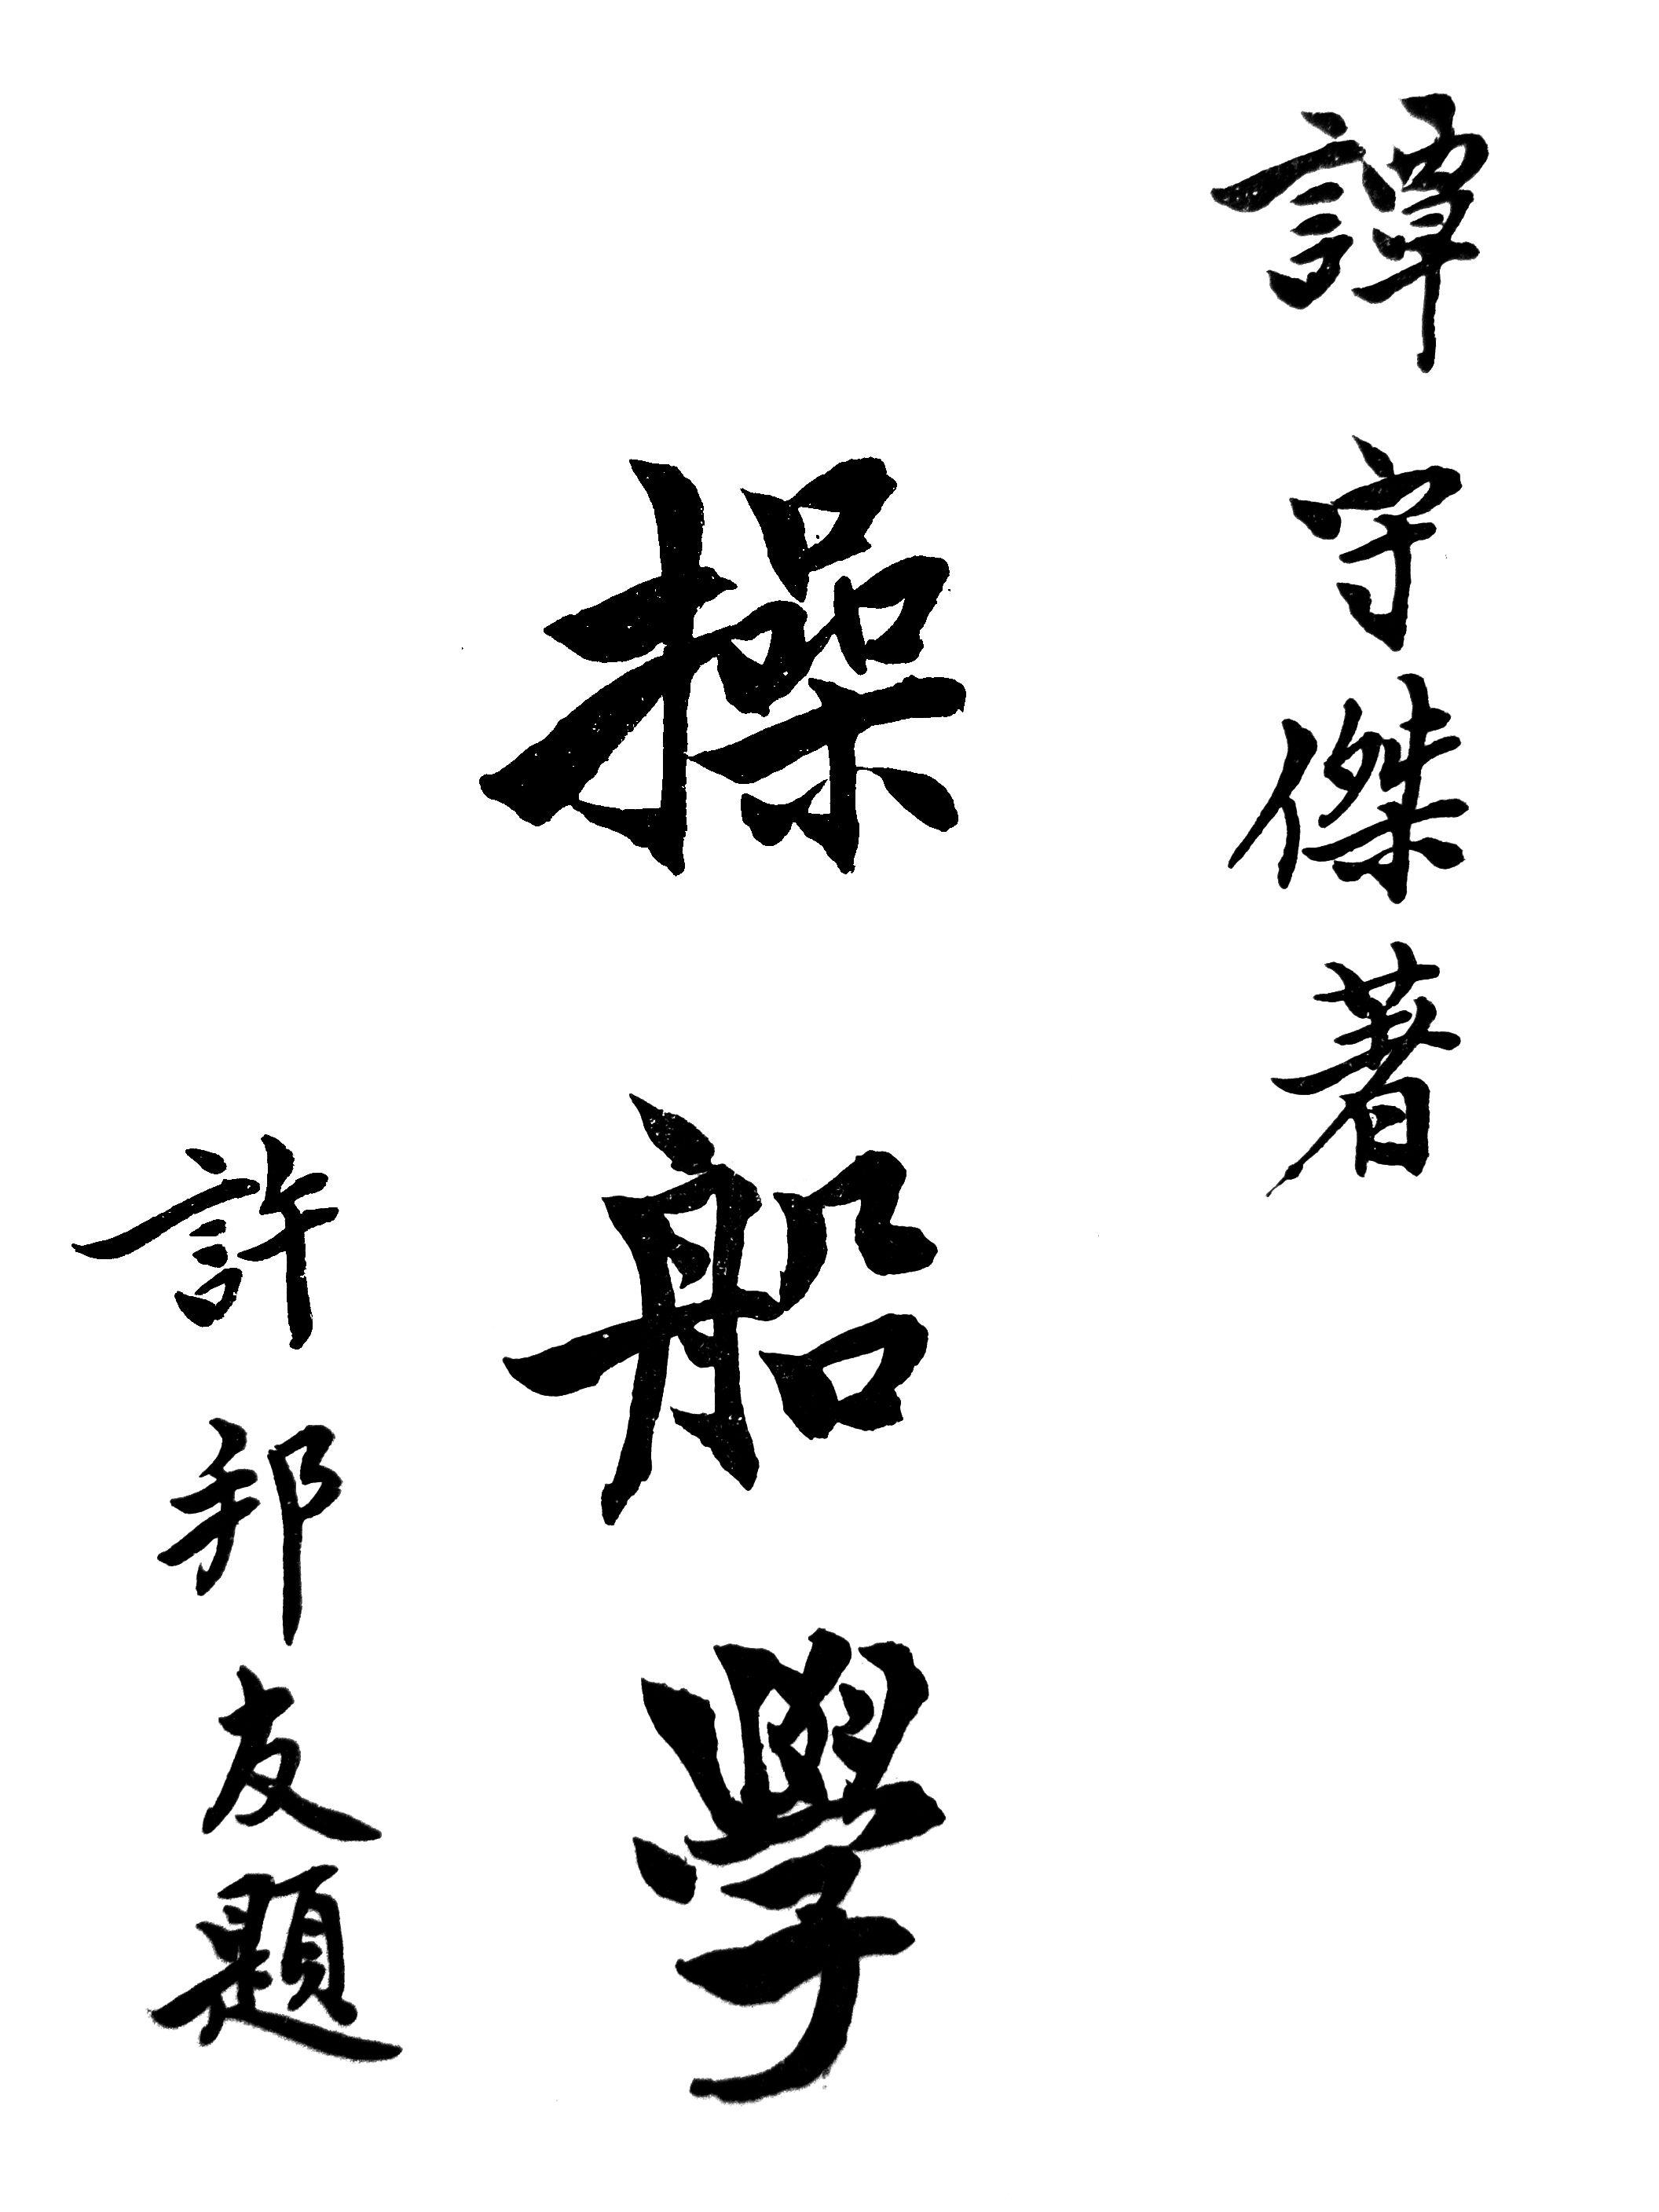 譚守傑著
操船學
許邦友題